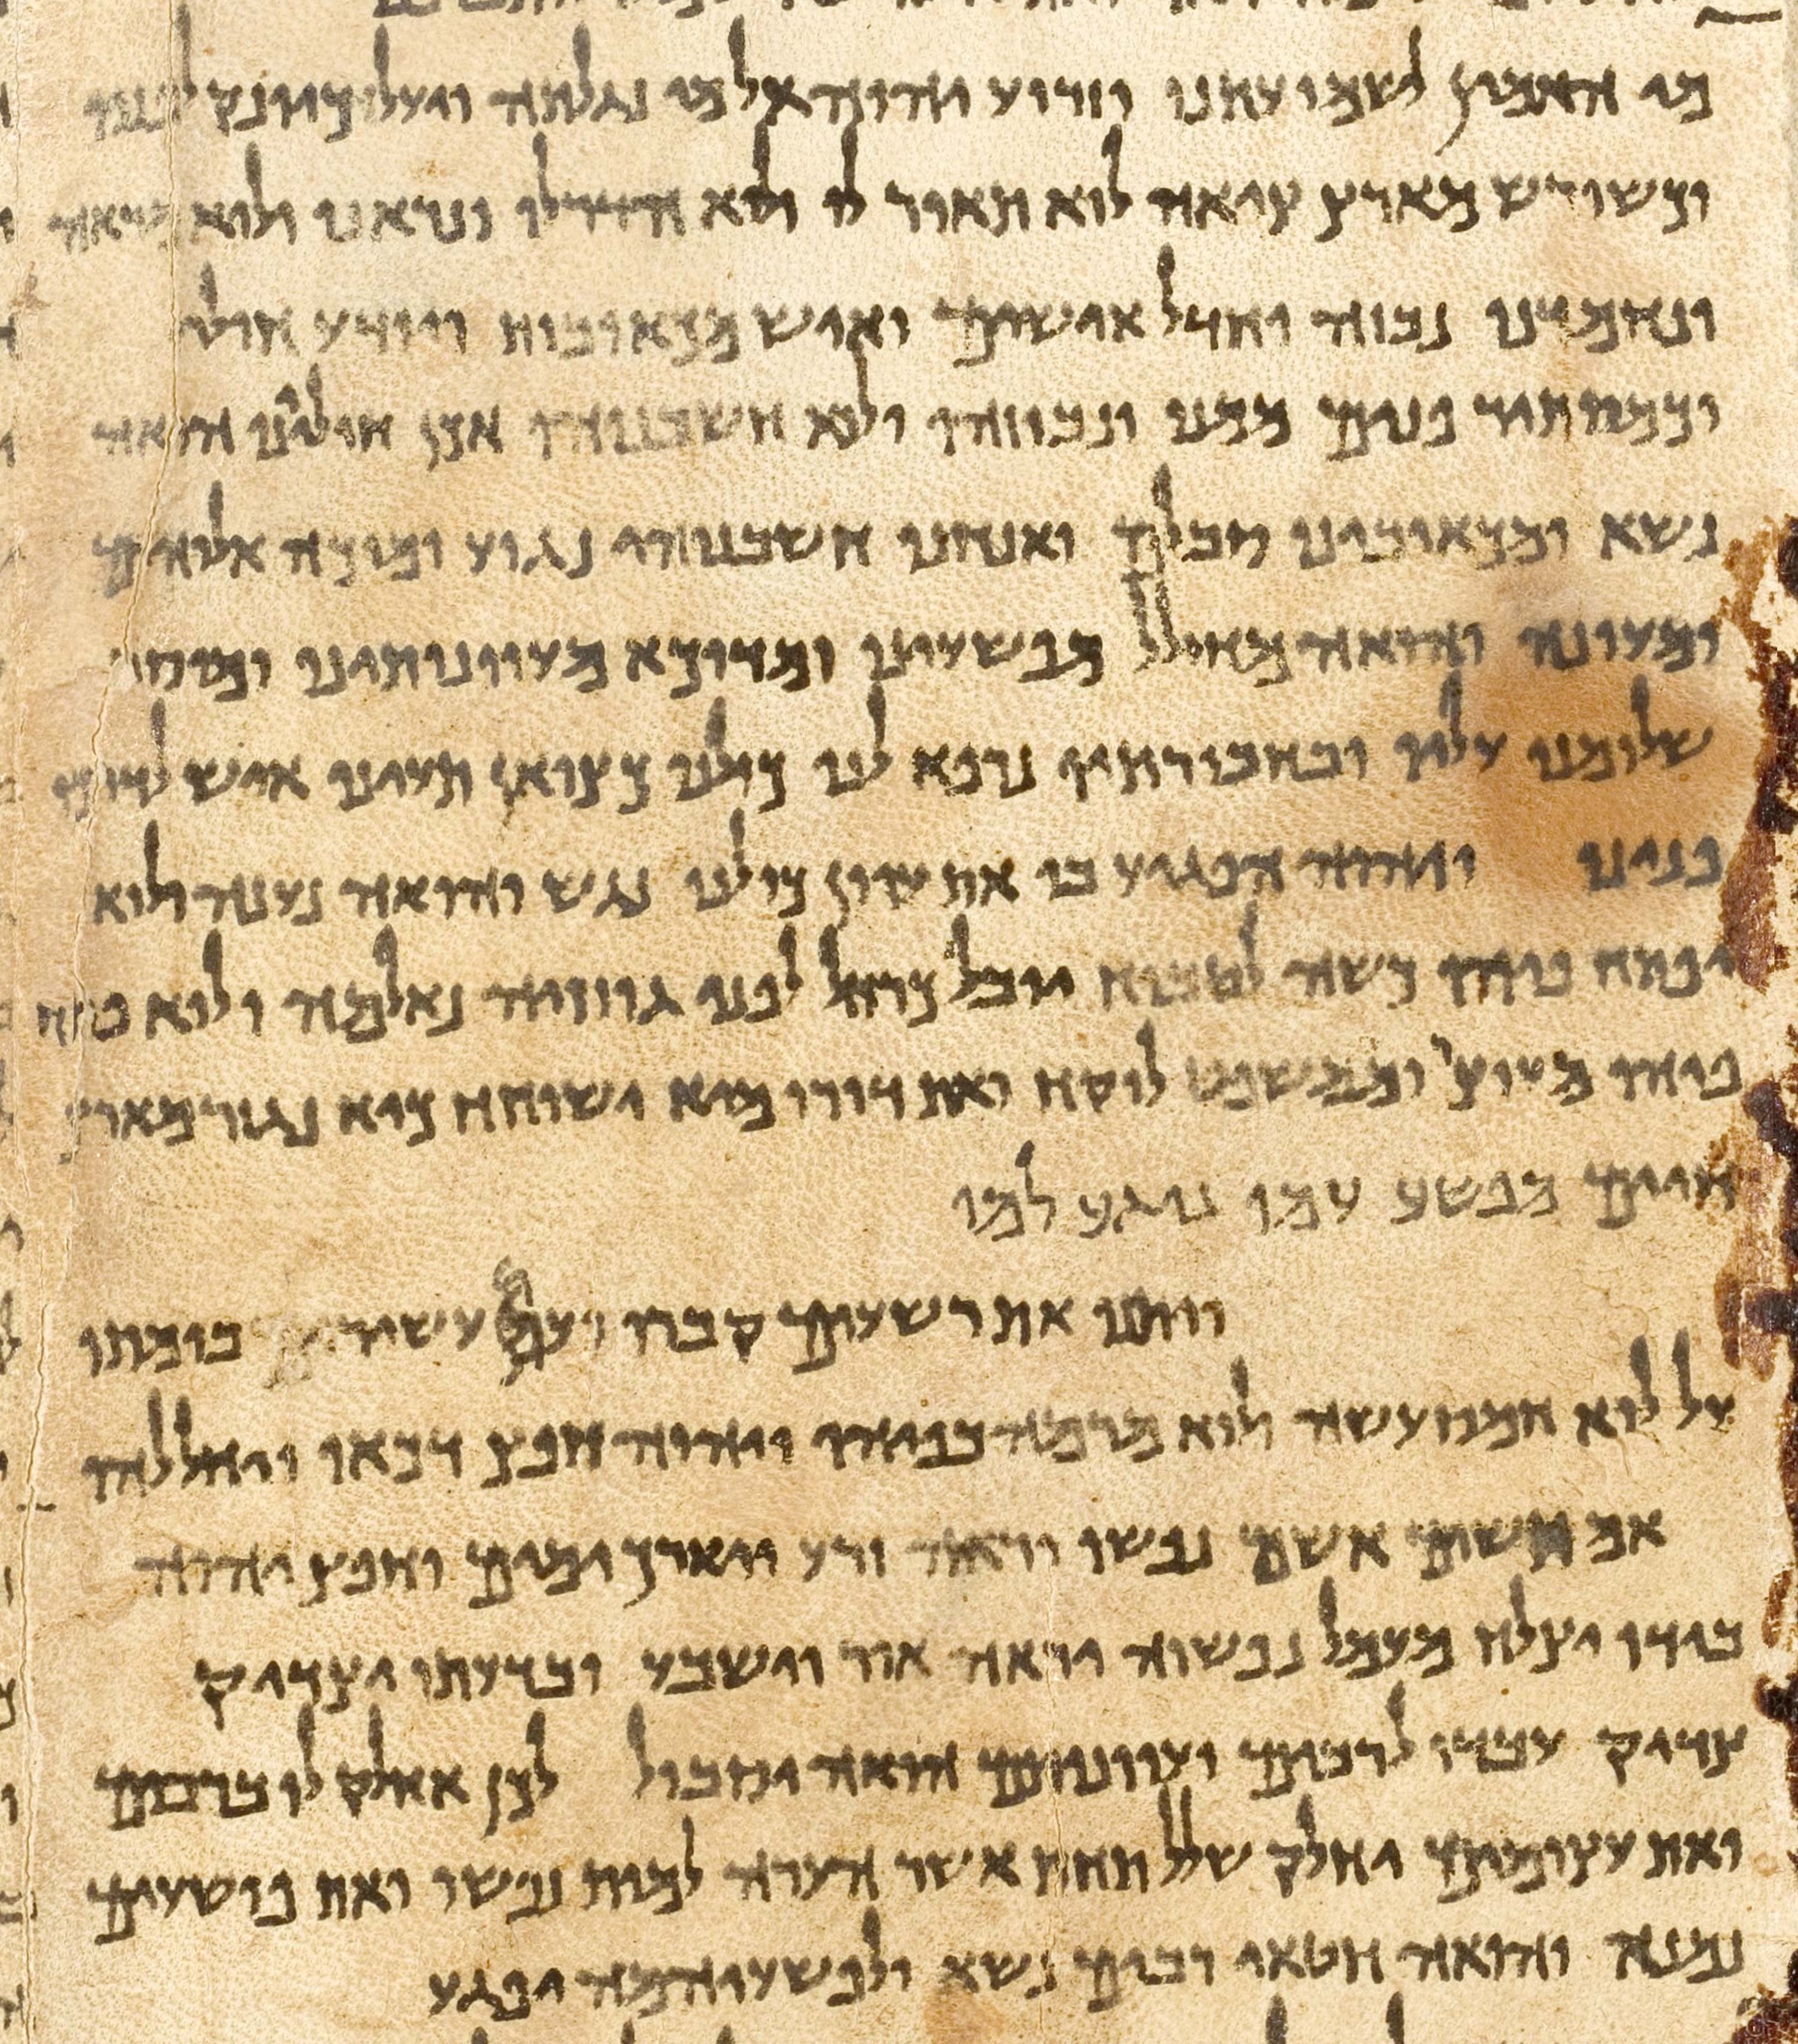 מי האמין לשמועתנו וזרוע יהוה אל מי נגלתה ויעל כיונק לפניו
וכשורש מארץ ציאה לוא תאור לו ולא הדר לו ונראנו ולוא מראה
ונחמדנו נבזה וחדל אישים ואיש מכאובות ויודע חולי
וכמסתר פנים ממנו ונבוזהו ולוא חשבנוהו אכן חוליינו הואה
נשא ומכאובינו סבלם ואנחנו חשבנוהו נגוע ומוכה אלוהים
ומעונה והואה מחולל מפשעינו ומדוכא מעוונותינו ומוסר
שלומנו עליו ובחבורתיו נרפא לנו כולנו כצואן תעינו איש לדרכו
פנינו ויהוה הפגיע בו את עוון כולנו נגש והואה נענה ולוא
יפתח פיהו כשה לטבוח יובל כרחל לפני גוזזיה נאלמה ולוא פתח
פיהו מעוצר וממשפט לוקח ואת דורו מיא ישוחח כיא נגזר מארץ
חיים מפשע עמו נוגע למו
ויתנו את רשעים קברו ועם עשיר בומתו
על לוא חמס עשה ולוא מרמה בפיהו ויהוה חפץ דכאו ויחללהו
אם תשים אשם נפשו יראה זרע ויארך ימים וחפץ יהוה
בידו יצלח מעמל נפשוה יראה אור וישבע ובדעתו יצדיק
צדיק עבדו לרבים ועוונותם הואה יסבול לכן אחלק לו ברבים
ואת עצומים יחלק שלל תחת אשר הערה למות נפשו ואת פושעים
נמנא והואה חטאי רבים נשא ולפשעיהמה יפגע